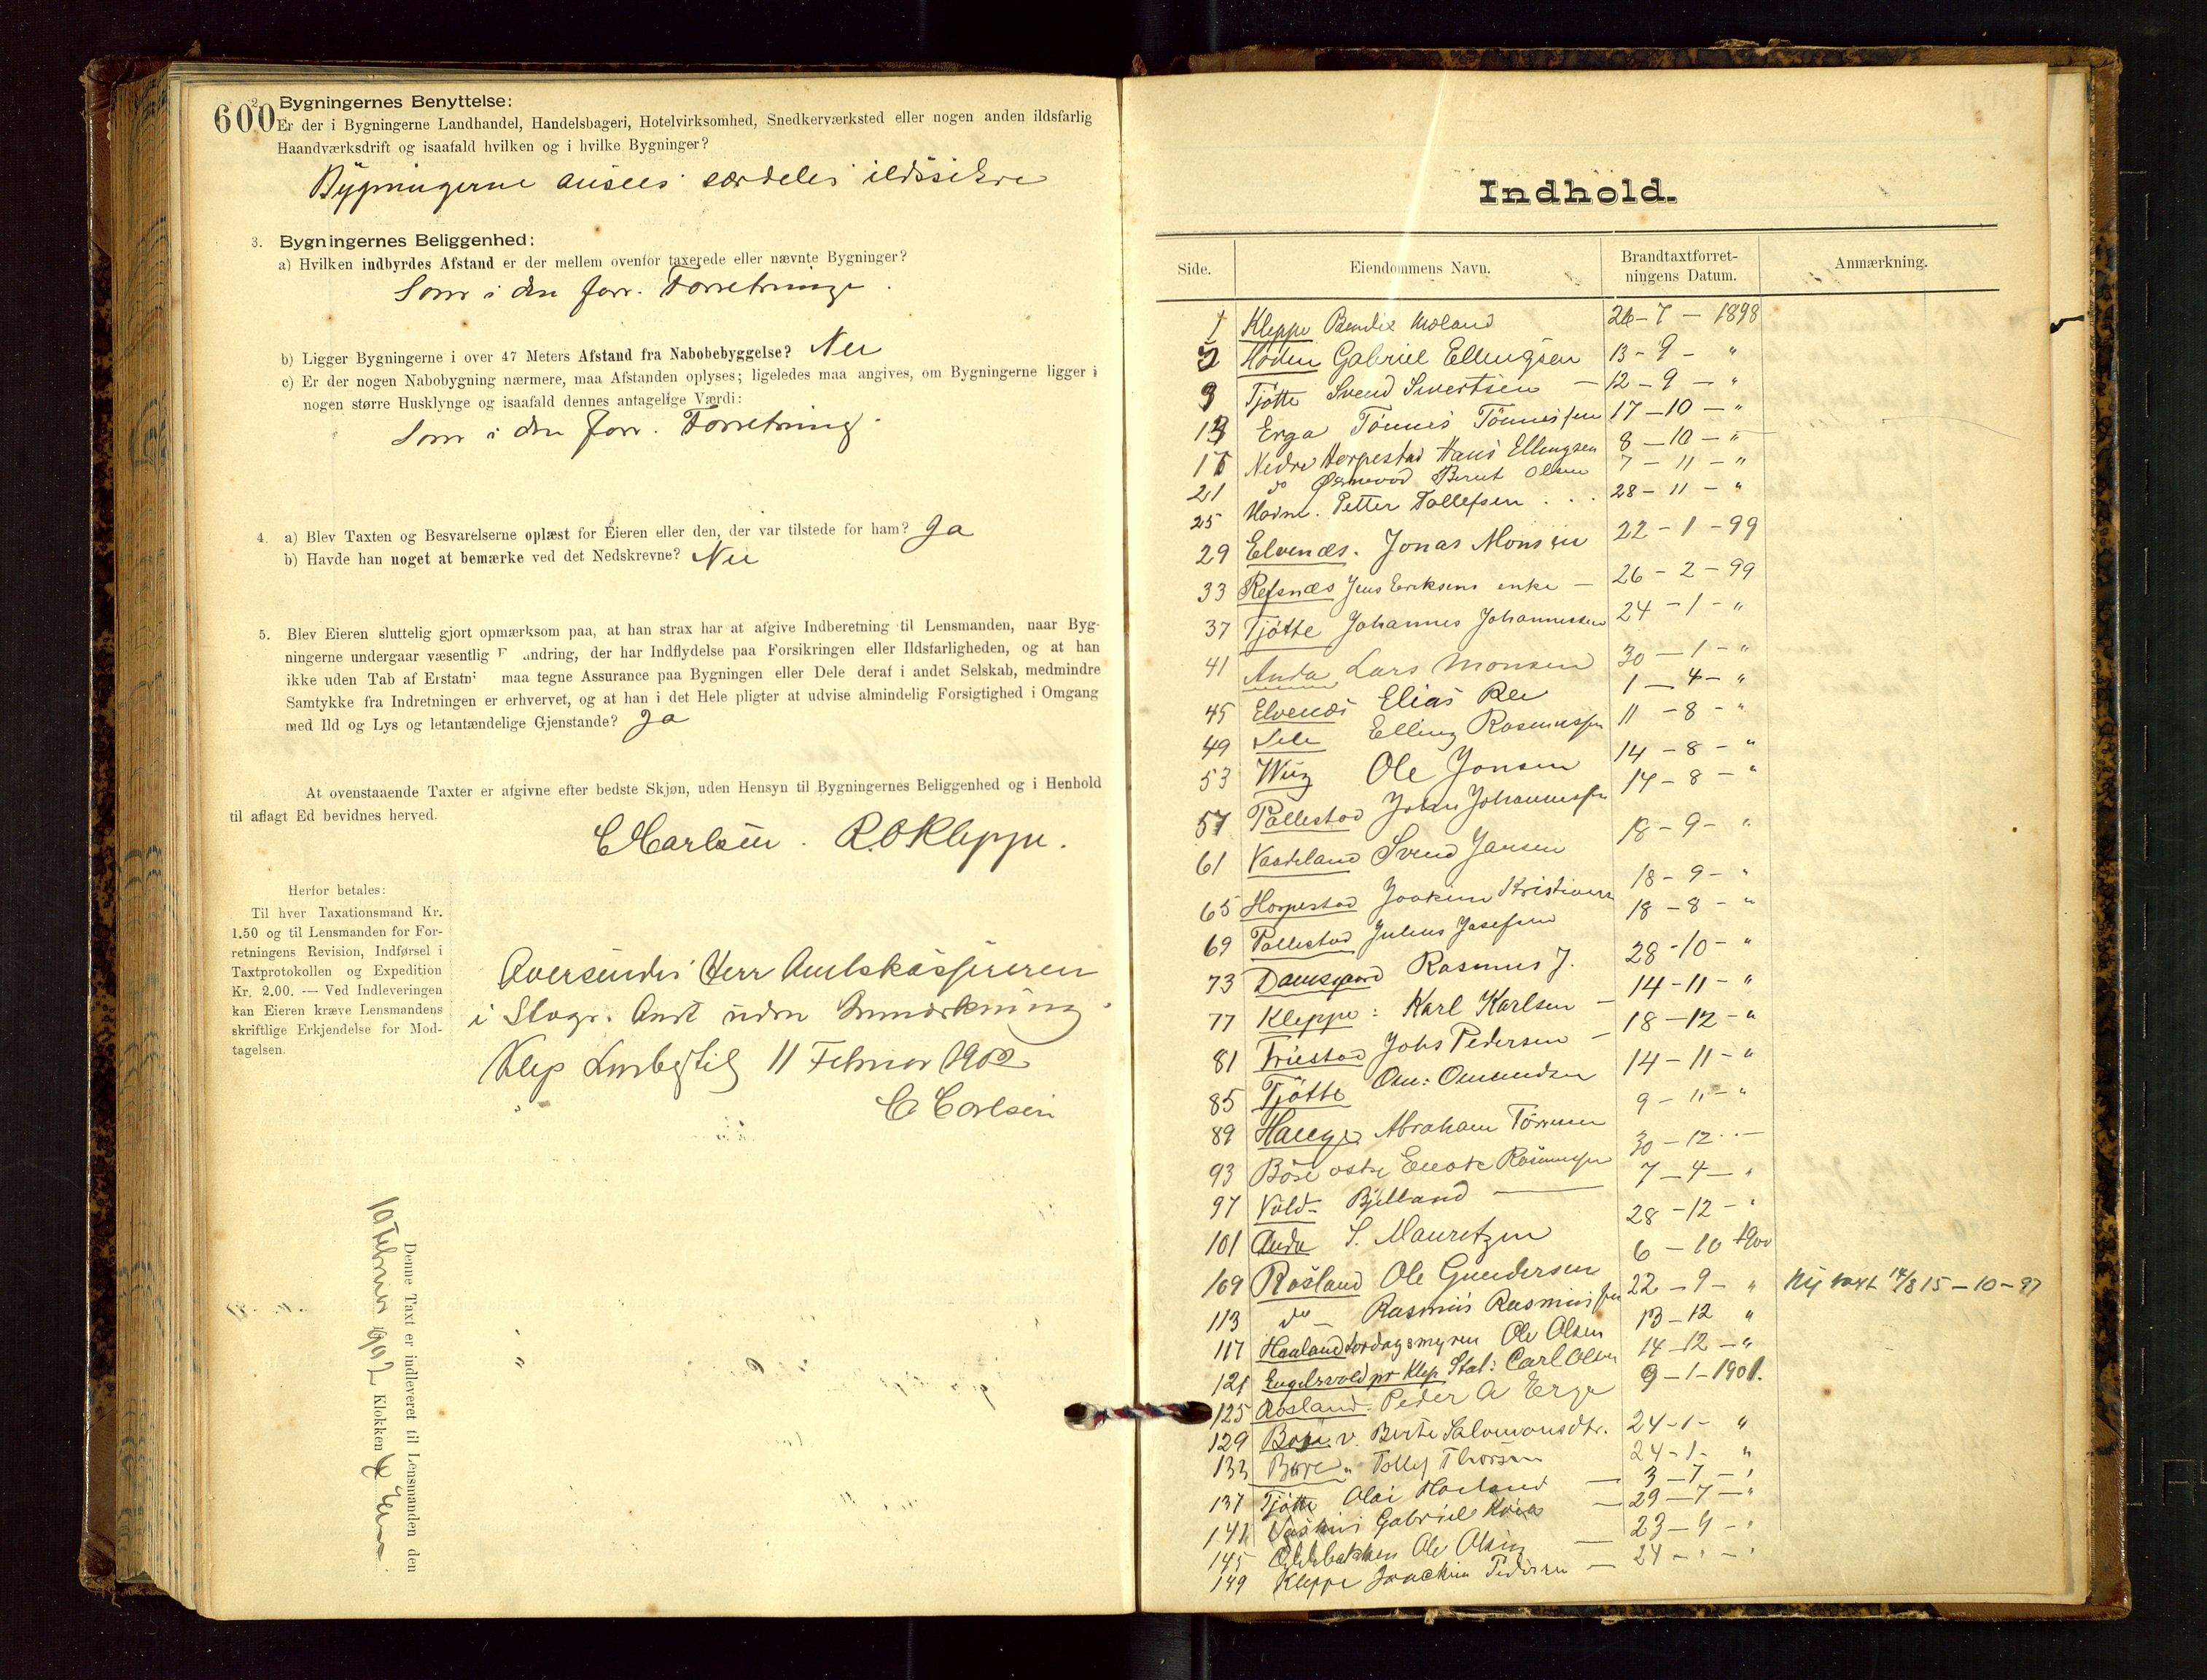 600
2. Bygningernes Benyttelse:
Er der i Bygningerne Landhandel, Handelsbageri, Hotelvirksomhed, Snedkerværksted eller nogen anden ildsfarlig
Haandværksdrift og isaafald hvilken og i hvilke Bygninger?
Bygningerne ansees særdeles ildssikre
3. Bygningernes Beliggenhed:
a) Hvilken indbyrdes Afstand er der mellem ovenfor taxerede eller nævnte Bygninger?
Som i den forr. Forretninge.
b) Ligger Bygningerne i over 47 Meters Afstand fra Nabobebyggelse? Nei
c) Er der nogen Nabobygning nærmere, maa Afstanden oplyses; ligeledes maa angives, om Bygningerne ligger i
nogen større Husklynge og isaafald dennes antagelige Værdi:
Som i den forr. Forretning.
4. a) Blev Taxten og Besvarelserne oplæst for Eieren eller den, der var tilstede for ham? Ja
b) Havde han noget at bemærke ved det Nedskrevne? Nei
5. Blev Eieren sluttelig gjort opmærksom paa, at han strax har at afgive Indberetning til Lensmanden, naar Byg-
ningerne undergaar væsentlig F andring, der har Indflydelse paa Forsikringen eller Ildsfarligheden, og at han
ikke uden Tab af Erstatni maa tegne Assurance paa Bygningen eller Dele deraf i andet Selskab, medmindre
Samtykke fra Indretningen er erhvervet, og at han i det Hele pligter at udvise almindelig Forsigtighed i Omgang
med Ild og Lys og letantændelige Gjenstande? Ja
At ovenstaaende Taxter er afgivne efter bedste Skjøn, uden Hensyn til Bygningernes Beliggenhed og i Henhold
til aflagt Ed bevidnes herved.
C Carlsen. R.O Kleppe.
Herfor betales:
Til hver Taxationsmand Kr.
1.50 og til Lensmanden for For-
retningens Revision, Indførsel i
Taxtprotokollen og Expedition
Kr. 2.00. — Ved Indleveringen
kan Eieren kræve Lensmandens
skriftlige Erkjendelse for Mod-
tagelsen.
Oversendes Herr Amtskassereren
i Stavgr. Amt uden Anmærkning.
Klep 11 Februar 1902
C Carlsen
Denne Taxt er indleveret til Lensmanden den
10 Februar 1902 Klokken
Indhold.
Side. Eiendommens Navn. Brandtaxtforret-
ningens Datum. Anmærkning.
1 Kleppe Bendix Moland 26-7-1898
5 Hodne Gabriel Ellingsen 13-9-"
9 Tjøtte Svend Sivertsen — 12-9-"
13 Erga Tønnes Tønnessen 17-10-"
17 Nedre Horpestad Hans Ellingsen 8-10-"
21 do Berent Olsen 7-11-"
25 Petter Tollefsen 28-11-"
29 Elvenæs. Jonas Monsen 22-1-99
33 Refsnæs Jens Eriksens enke — 26-2-99
37 Tjøtte Johannes Johannessen 24-1-"
41 Anda Lars Monsen 30-1-"
45 Elvenæs Elias Ree 1-4-"
49 Sele Elling Rasmussen 11-8-"
53 Wiig Ole Jonsen 14-8-"
57 Pallestad Johan Johannessen 14-8-"
61 Vasteland Svend Jansen 18-9-"
65 Horpestad Joakim Kristians 18-9-"
69 Pallestad Julius Josefsen 18-8-"
73 Damsgaard Rasmus J. 28-10-"
77 Kleppe: Karl Karlsen — 14-11-"
81 Friestad Johs Pedersen — 18-12-"
85 Tjøtte Om: Omundsen 14-11-"
89 Hauge Abraham Tørresen 9-11-"
93 Bore østre Enok Rasmussen 30-12-
97 Vold- Bjelland — 7-4-"
101 Anda S. Mauretzen 28-12-"
109 Røsland Ole Gundersen 6-10 1900
113 do — Rasmus Rasmussen 22-9-" Ny taxt 14/8 15-10-97
117 Haaland Lordagsmyren Ole Olsen 13-12 "
121 Engelsvold pr Klep Stat: Carl Olsen 14-12-"
125 Røsland. Peder A Erga 9-1-1901.
129 Bore v. Berte Salomonsdtr. 24-1-"
133 Bore " Tollef Thorsen 24-1-"
137 Tjøtte Olai Haaland — 3-7-"
141 Gabriel — 29-7-"
145 Ole Olsen — 23-9-"
149 Kleppe Joachim Pedersen — 24-"-"